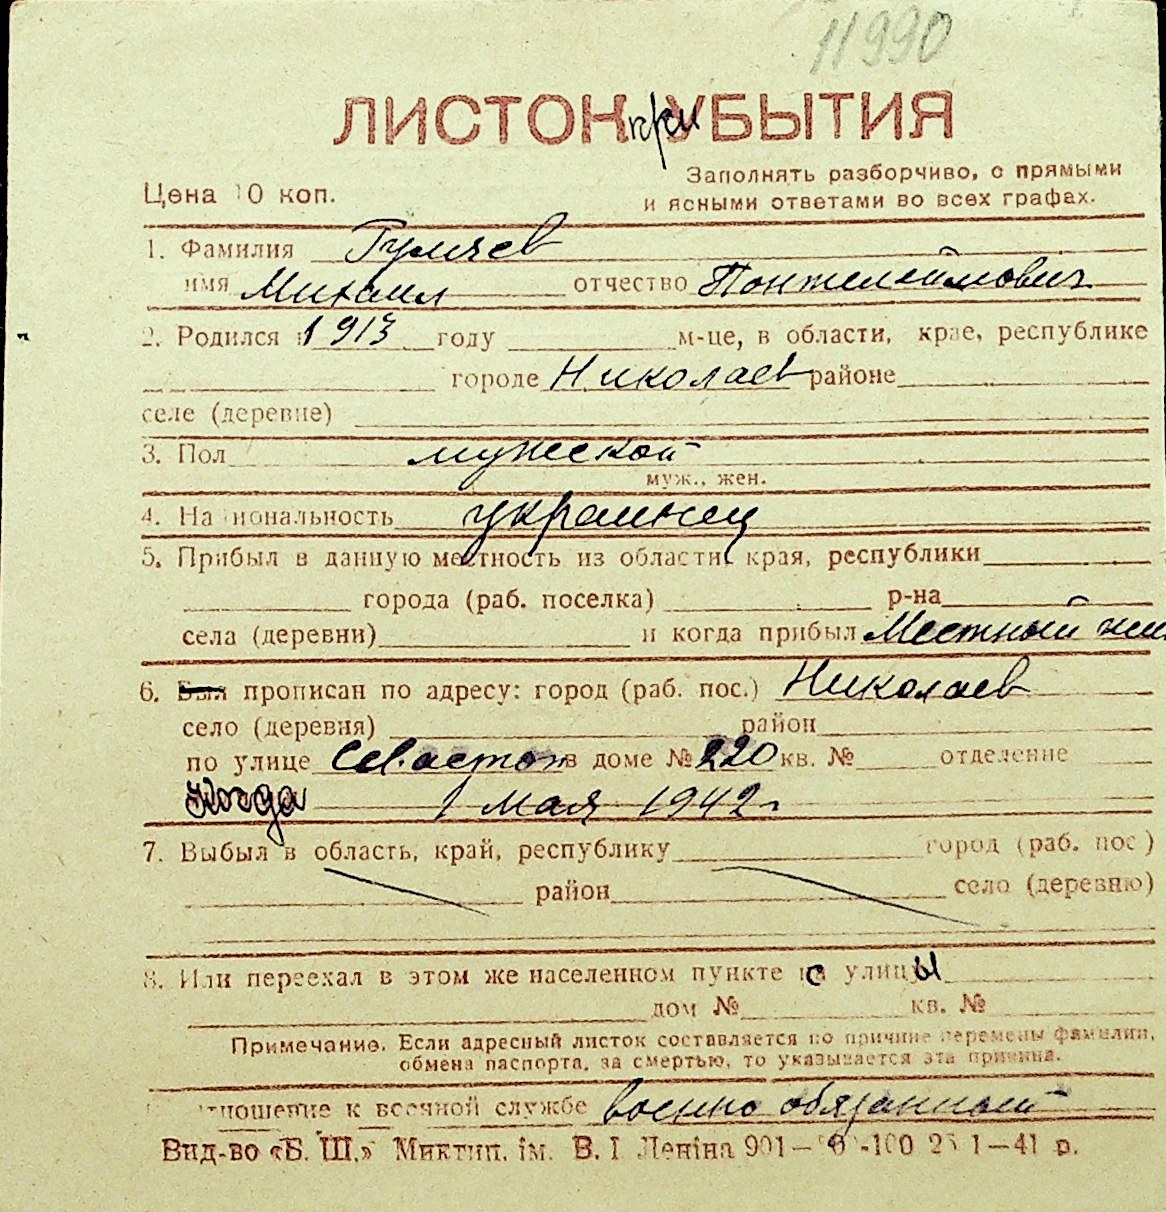 11990
ЛИСТОК при УБЫТИЯ
Цена 10 коп.
Заполнять разборчиво, с прямыми
и ясными ответами во всех графах.
1. Фамилия Гуляев
имя Михаил отчество Понтелеймович
2. Родился в 1913 году м-це, в области, крае, республике
городе Николаев районе
селе (деревне)
3. Пол мужской
муж., жен.
4. Национальность украинец
5. Прибыл в данную местность из области, края, республики
города (раб. поселка) р-на
села (деревни) и когда прибыл Местный жи
6. Был прописан по адресу: город (раб. пос.) Николаев
село (деревня) район
по улице Севастоп в доме № 220 кв. № отделение
Когда 1 мая 1942 г
7. Выбыл в область, край, республику город (раб. пос)
район село (деревню)
8. Или переехал в этом же населенном пункте с улицы
дом № кв. №
Примечание. Если адресный листок составляется по причине перемены фамилии,
обмена паспорта, за смертью, то указывается эта причина.
отношение к военной службе военно обязанный
Вид-во «Б. Ш.» Миктип. ім. В. І Леніна 901— -100 1—41 р.